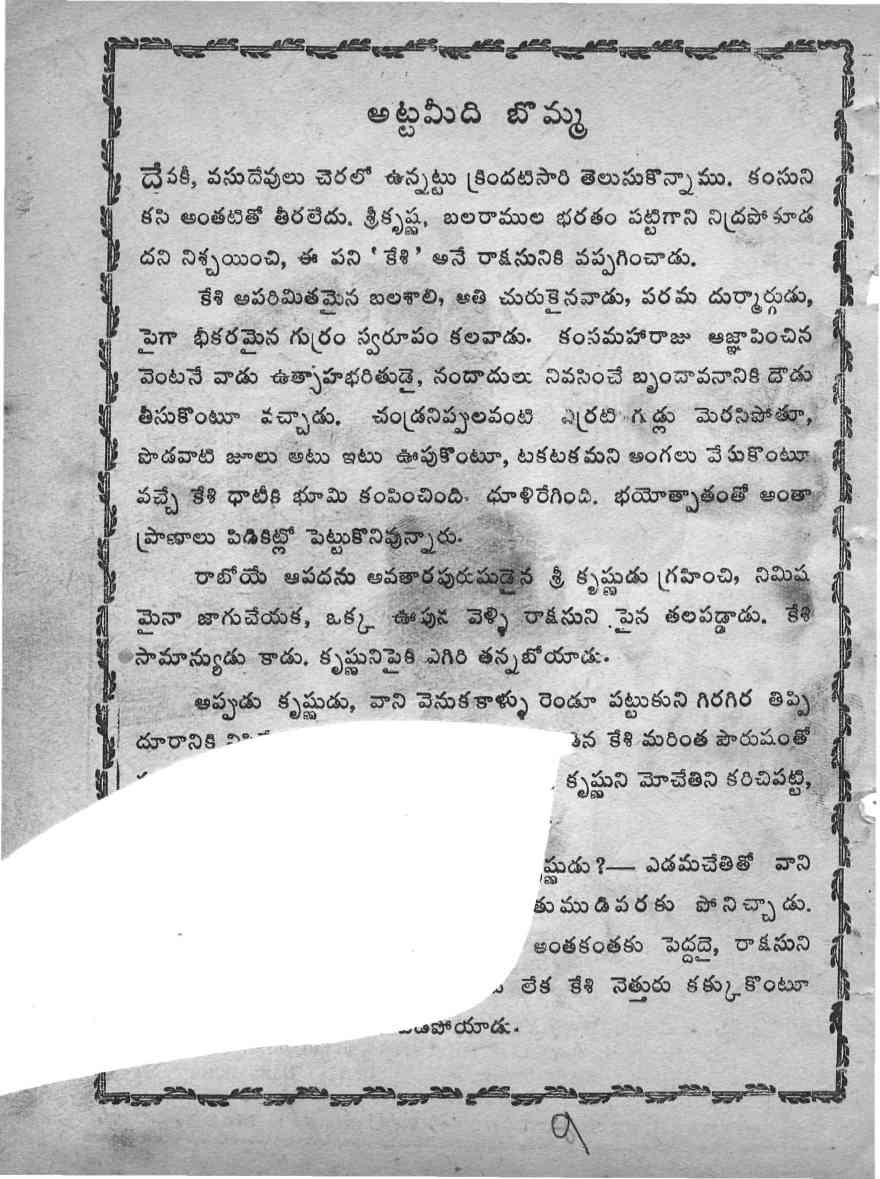 అట్టమీది బొమ్మ
దేవకీ, వసుదేవులు చెరలో ఉన్నట్టు క్రిందటిసారి తెలుసుకొన్నాము. కంసుని
కసి అంతటితో తీరలేదు. శ్రీకృష్ణ, బలరాముల భరతం పట్టిగాని నిద్రపోకూడ
దని నిశ్చయించి, ఈ పని ' కేశి ' అనే రాక్షసునికి వప్పగించాడు.
కేశి అపరిమితమైన బలశాలి, అతి చురుకైనవాడు, పరమ దుర్మార్గుడు,
పైగా భీకరమైన గుర్రం స్వరూపం కలవాడు. కంసమహారాజు ఆజ్ఞాపించిన
వెంటనే వాడు ఉత్సాహభరితుడై, నందాదులు నివసించే బృందావనానికి దౌడు
తీసుకొంటూ వచ్చాడు. చండ్రనిప్పులవంటి ఎర్రటి గుడ్లు మెరసిపోతూ,
పొడవాటి జూలు అటు ఇటు ఊపుకొంటూ, టకటకమని అంగలు వేసుకొంటూ
వచ్చే కేశి ధాటీకి భూమి కంపించింది. ధూళిరేగింది. భయోత్పాతంతో అంతా
ప్రాణాలు పిడికిట్లో పెట్టుకొనివున్నారు.
రాబోయే ఆపదను అవతారపురుషుడైన శ్రీ కృష్ణుడు గ్రహించి, నిమిష
మైనా జాగుచేయక, ఒక్క ఊపున వెళ్ళి రాక్షసుని పైన తలపడ్డాడు. కేశి
సామాన్యుడు కాడు. కృష్ణునిపైకి ఎగిరి తన్నబోయాడు.
అప్పుడు కృష్ణుడు, వాని వెనుకకాళ్ళు రెండూ పట్టుకుని గిరగిర తిప్పి
దూరానికి కేశి మరింత పౌరుషంతో
కృష్ణుని మోచేతిని కరిచిపట్టి,
ష్ణుడు ?— ఎడమచేతితో వాని
ముడిపరకు పోనిచ్చాడు.
అంతకంతకు పెద్దదై, రాక్షసుని
లేక కేశి నెత్తురు కక్కుకొంటూ
పడిపోయాడు.
9